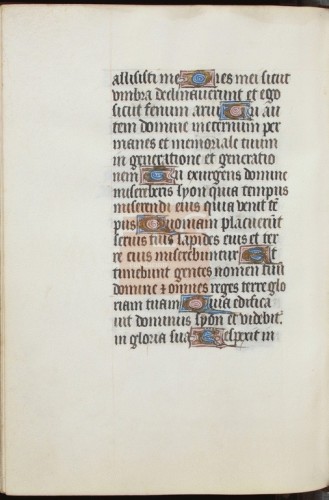 allisisti me Dies mei sicut
vmbra declinauerunt et ego
sicut fenum arui Tu au
tem domine ineternum per
manes et memoriale tuum
in generatione et generatio
nem Tu exurgens domine
misereberis syon quia tempus
miserendi eius quia venit te͂
pus Quoniam placuerunt
seruis tuis lapides eius et ter
re eius miserebuntur Et
timebunt gentes nomen tuu͂
domine ⁊ omnes reges terre glo
riam tuam Quia edifica
uit dominus syon et videbit᷑
in gloria sua Respexit in